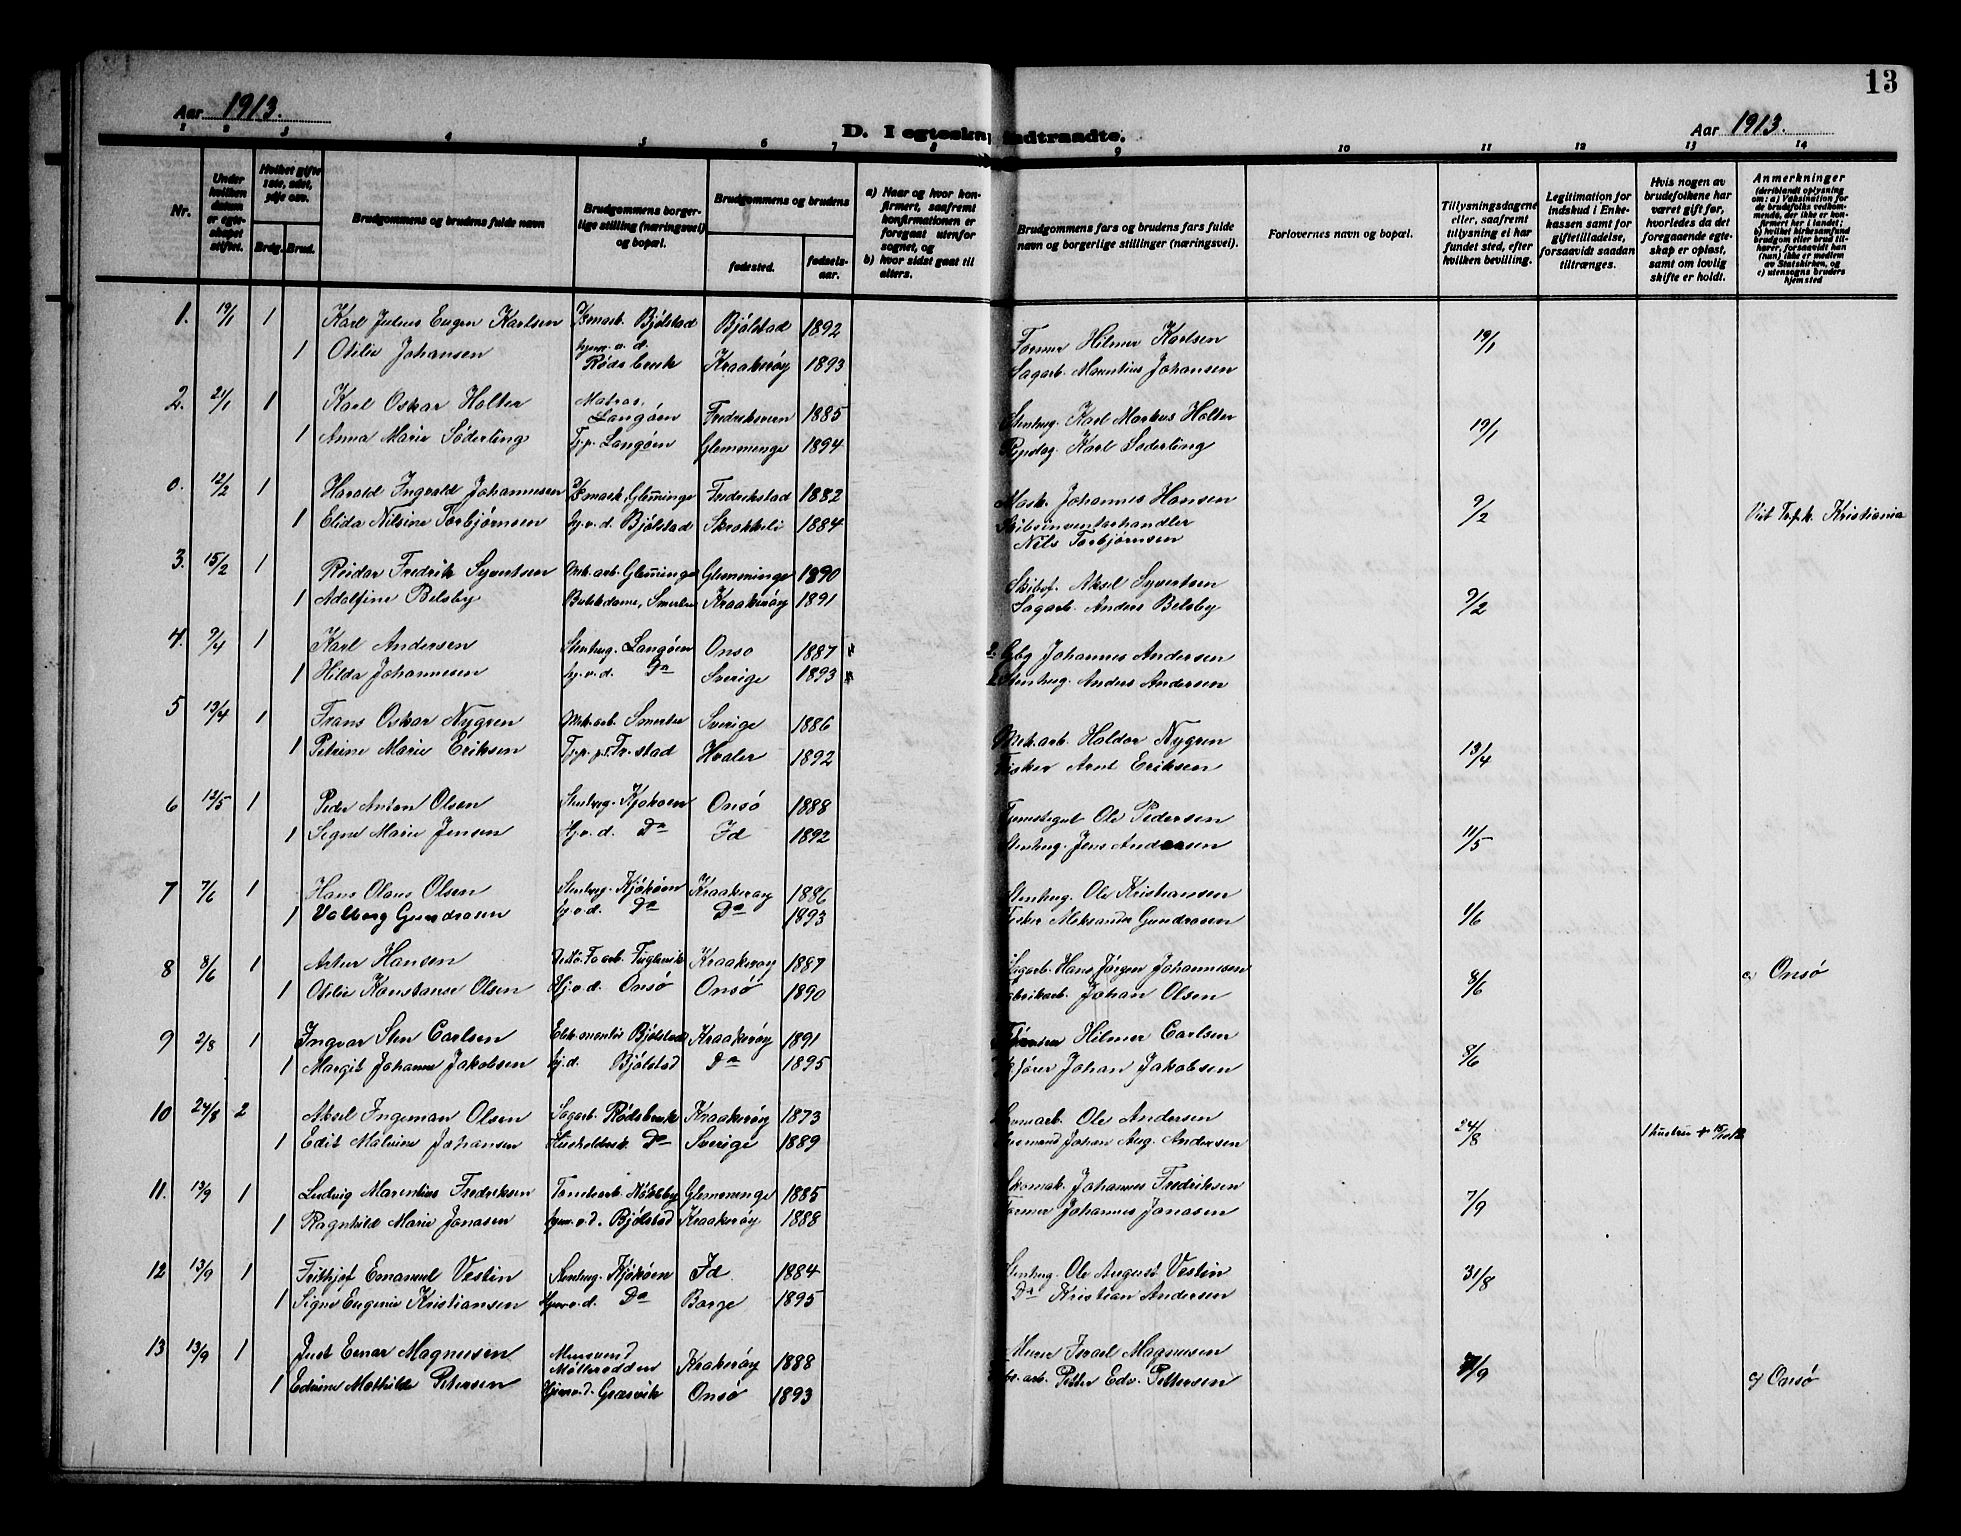 13
Aar 1913.
D. I egteskap indtraadte.
Aar 1913.
1 2 3 4 5 6 7 8 9 10 11 12 13 14
Nr.
Under hvilken datum er egteskapet stiftet.
Hvilket gifte 1ste, 2det, 3dje osv.
Brdg. Brud.
Brudgommens og brudens fulde navn
Brudgommens borgerlige stilling (næringsvei) og bopæl.
Brudgommens og brudens
fødested.
fødselsaar.
a) Naar og hvor konfirmert, saafremt konfirmationen er foregaat utenfor sognet, og
b) hvor sidst gaat til alters.
Brudgommens fars og brudens fars fulde navn og borgerlige stillinger (næringsvei).
Forlovernes navn og bopæl.
Tillysningsdagene eller, saafremt tillysning ei har fundet sted, efter hvilken bevilling.
Legitimation for indskud i Enkekassen samt for giftetilladelse, forsaavidt saadan tiltrænges.
Hvis nogen av brudefolkene har været gift før, hvorledes da det foregaaende egteskap er opløst, samt om lovlig skifte er holdt.
Anmerkninger
(deriblandt oplysning om: a) Vaksination for de brudefolks vedkommende, der ikke er konfirmert her i landet; b) hvilket kirkesamfund brudgom eller brud tilhører, forsaavidt han (hun) ikke er medlem av Statskirken, og c) utensogns bruders hjemsted
1. 19/1 1 Karl Julius Eugen Karlsen Bjølstad Bjølstad 1892 Former Hilmer Karlsen 19/1
1 Otilie Johansen hjem. v. d. Rødsbruk Kraakerøy 1893 Sagarb. Marentius Johansen
2. 21/1 1 Karl Oskar Holter Matros, Langøen Fredriksværn 1885 Stenhug. Karl Markus Holter 19/1
1 Anna Marie Søderling Tjp. Langøen Glemmenge 1894 Karl Søderling
0. 12/2 1 Harald Ingvald Johannesen Glemminge Fredrikstad 1882 Mask. Johannes Hansen 9/2 Viet Tr.f.k. Kristiania
1 Elida Nilsine Torbjørnsen hj. v. d. Bjølstad 1884 Skibsinventarhandler Nils Torbjørnsen
3. 15/2 1 Reidar Fredrik Syvertsen Mek. arb. Glemminge Glemminge 1890 Aksel Syvertsen 9/2
1 Adolfine Belsby Butikdame, Smertu Kraakerøy 1891 Sagarb. Anders Belsby
4. 9/4 1 Karl Andersen Stenhug. Langøen Onsø 1887 Johannes Andersen
1 Hilda Johannesen hj. v. d. Do Sverige 1893 Stenhug. Anders Andersen
5 13/4 1 Frans Oskar Nygren Mek. arb. Smertu Sverige 1886 Mek. arb. Haldor Nygren 13/4
1 Petrine Marie Eriksen Tjp. Fr.stad Hvaler 1892 Fisker Arnt Eriksen
6 12/5 1 Peder Anton Olsen Stenhug. Kjøkøen Onsø 1888 Ole Pedersen 11/5
1 Signe Marie Jensen Hj. v. d. Do Id 1892 Stenhug. Jens Andersen
7 7/6 1 Hans Olaus Olsen Stenhug. Kjøkøen Kraakerøy 1886 Stenhug. Ole Kristiansen 1/6
1 Valborg Gundrosen hj. v. d. Do Do 1893 Fisker Aleksander Gundrosen
8 8/6 1 Artur Hansen Fuglevik Kraakerøy 1887 Sagarb. Hans Jørgen Johannesen 8/6 c) Onsø
1 Otilie Konstanse Olsen Hj. v. d. Onsø Onsø 1890 Fabrikarb. Johan Olsen
9 2/8 1 Ingvar Sten Carlsen Elektr. montør Bjølstad Kraakerøy 1891 Hilmer Carlsen 8/6
1 Margit Johanne Jakobsen hj. d. Bjølstad Do 1895 Johan Jakobsen
10 24/8 2 Aksel Ingeman Olsen Sagarb. Rødsbruk Kraakerøy 1873 Ole Andersen 24/8 1 hustru + 15/10 12
1 Edit Malvine Johansen Husholdersk. Do Sverige 1889 Johan Aug. Andersen
11. 13/9 1 Ludvig Marentius Fredriksen Tomtearb. Glemmenge 1885 Skomak. Johannes Fredriksen 7/9
1 Ragnhild Marie Jonasen hjem. v. d. Bjølstad Kraakerøy 1888 Former Johannes Jonasen
12 13/9 1 Frithjof Emanuel Vestin Stenhug. Kjøkøen Id 1884 Stenhug. Ole August Vestin 31/8
1 Signe Eugenie Kristiansen Hjem v. d. Do Borge 1895 Do Kristian Andersen
13 13/9 1 Just Einar Magnusen Murersvend Møllerodden Krakerøy 1888 Murer Israel Magnusen 7/9
1 Edvine Mathilde Petersen Hjem v. d. Græsvik Onsø 1893 Petter Edv. Pettersen c) Onsø